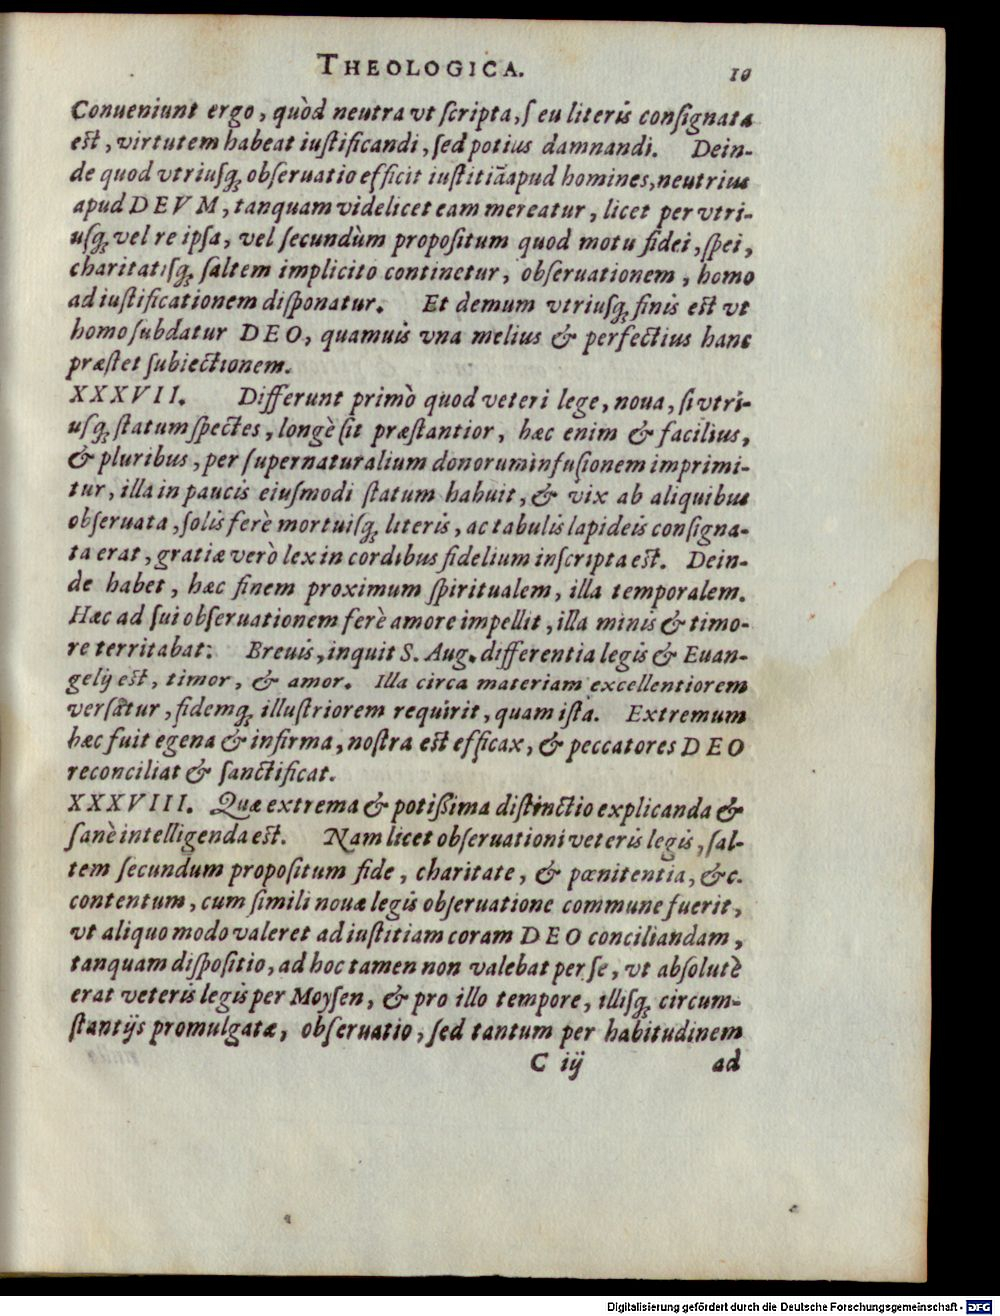 THEOLOGICA. 10
Conueniunt ergo, quòd neutra vt ſcripta, ſeu literis conſignata
eſt, virtutem habeat iuſtificandi, ſed potius damnandi. Dein-
de quod vtriuſq́; obſeruatio efficit iuſtitiā apud homines, neutrius
apud DEVM, tanquam videlicet eam mereatur, licet per vtri-
uſq́; vel re ipſa, vel ſecundùm propoſitum quod motu fidei, ſpei,
charitatiſq́; ſaltem implicito continetur, obſeruationem, homo
ad iuſtificationem diſponatur. Et demum vtriuſq́; finis eſt vt
homo ſubdatur DEO, quamuis vna melius & perfectius hanc
præſtet ſubiectionem.
XXXVII. Differunt primò quod veteri lege, noua, ſi vtri-
uſq́; ſtatum ſpectes, longè ſit præſtantior, hæc enim & facilius,
& pluribus, per ſupernaturalium donorum infuſionem imprimi-
tur, illa in paucis eiuſmodi ſtatum habuit, & vix ab aliquibus
obſeruata, ſolis ferè mortuiſq́; literis, ac tabulis lapideis conſigna-
ta erat, gratiæ verò lex in cordibus fidelium inſcripta eſt. Dein-
de habet, hæc finem proximum ſpiritualem, illa temporalem.
Hæc ad ſui obſeruationem ferè amore impellit, illa minis & timo-
re territabat: Breuis, inquit S. Aug. differentia legis & Euan-
gelij eſt, timor, & amor. Illa circa materiam excellentiorem
verſatur, fidemq́; illuſtriorem requirit, quam iſta. Extremum
hæc fuit egena & infirma, noſtra eſt efficax, & peccatores DEO
reconciliat & ſanctificat.
XXXVIII. Quæ extrema & potiſſima diſtinctio explicanda &
ſanè intelligenda eſt. Nam licet obſeruationi veteris legis, ſal-
tem ſecundum propoſitum fide, charitate, & pœnitentia, &c.
contentum, cum ſimili nouæ legis obſeruatione commune fuerit,
vt aliquo modo valeret ad iuſtitiam coram DEO conciliandam,
tanquam diſpoſitio, ad hoc tamen non valebat per ſe, vt abſolutè
erat veteris legis per Moyſen, & pro illo tempore, illiſq́; circum-
ſtantijs promulgatæ, obſeruatio, ſed tantum per habitudinem
C iij ad
Digitalisierung gefördert durch die Deutsche Forschungsgemeinschaft - DFG